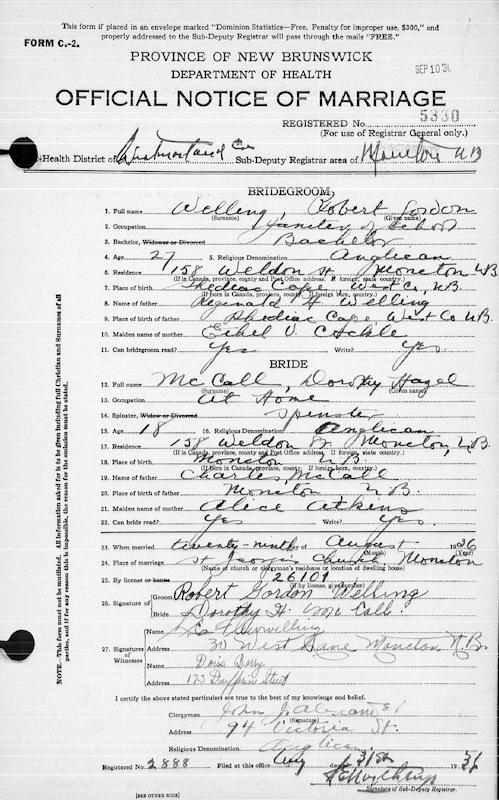 This form if placed in an envelope marked "Dominion Statistics—Free, Penalty for improper use, $300," and
properly addressed to the Sub-Deputy Registrar will pass through the mails "FREE."
FORM C.-2.
PROVINCE OF NEW BRUNSWICK
DEPARTMENT OF HEALTH
SEP 10 36
OFFICIAL NOTICE OF MARRIAGE
REGISTERED No. 5330
(For use of Registrar General only.)
Health District of Westmorland Co Sub-Deputy Registrar area of Moncton NB
BRIDEGROOM
1. Full name Welling, Robert Gordon
(Surname) (Given name)
2. Occupation Janitor of School
3. Bachelor, Widower or Divorced Bachelor
4. Age 27 5. Religious Denomination Anglican
6. Residence 158 Weldon St Moncton NB
(If in Canada, province, county and Post Office address. If foreign, state country.)
7. Place of birth Shediac Cape, West Co, NB.
(If born in Canada, province, county. If foreign born, country.)
8. Name of father Reginald H Welling
9. Place of birth of father Shediac Cape West Co NB
10. Maiden name of mother Ethel V.
11. Can bridegroom read? Yes Write? Yes.
BRIDE
12. Full name McCall, Dorothy Hazel
(Surname) (Given name)
13. Occupation At Home
14. Spinster, Widow or Divorced Spinster
15. Age 18 16. Religious Denomination Anglican
17. Residence 158 Weldon St Moncton, NB.
(If in Canada, province, county and Post Office address. If foreign, state country.)
18. Place of birth Moncton NB.
(If born in Canada, province, county. If foreign born, country.)
19. Name of father Charles McCall
20. Place of birth of father Moncton NB.
21. Maiden name of mother Alice Atkins
22. Can bride read? Yes Write? Yes.
23. When married twenty-ninth August 1936
(Month) (Year)
24. Place of marriage St Georges Church Moncton
(Name of church or clergyman's residence or location of dwelling house)
25. By license or banns 26101
(If by license, give number)
26. Signature of
Groom Robert Gordon Welling
Bride Dorothy H. McCall.
27. Signatures of Witnesses
Name
Address 30 West Lane Moncton N.B.
Name Doris
Address 173 Dufferin Street
I certify the above stated particulars are true to the best of my knowledge and belief.
Clergyman John J.
(Signature)
Address 94 Victoria St.
Religious Denomination Anglican
Registered No. 2888 Filed at this office Aug 31st 1936
Signature of Sub-Deputy Registrar
[SEE OTHER SIDE]
NOTE. This form must not be mutilated. All information asked for is to be given including full Christian and Surnames of all
parties, and if for any reason this is impossible, the reason for the omission must be stated.